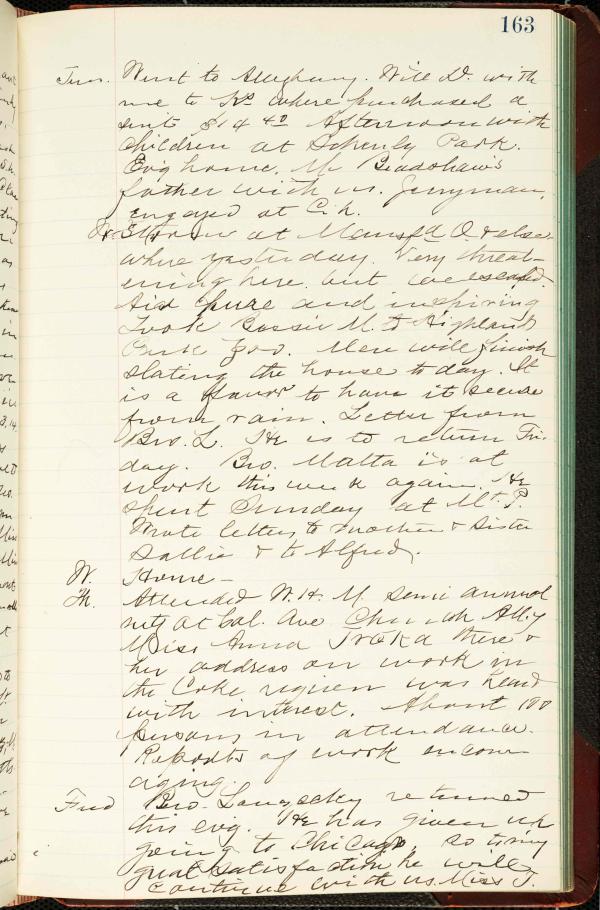 163
Tues. Went to Allegheny. Will D. with
me to K's where purchased a
suit $14 40 Afternoon with
children at Schenly Park.
Ev'g home. Mr Bradshaw's
father with us. Jerryman,
engaged at Ch.
Storm at Mansfd O. & else-
where yesterday. Very threat-
ening here but we escaped.
Air pure and inspiring
Took Bessie M. to Highland
Park Zoo. Men will finish
slating the house to day. It
is a favor to have it secure
from rain. Letter from
Bro. L. He is to return Fri-
day. Bro. Matta is at
work this week again. He
spent Sunday at Mt. P.
Wrote letters to mother & Sister
Sallie & to Alfred.
W. Home –
Th. Attended W. H. M. semi annual
mtg at Cal. Ave Church All'y
Miss Anna Troka there &
her address on work in
the Coke region was heard
with interest. About 100
persons in attendance.
Reports of work encour-
aging.
Frid Bro. Langecky returned
this evg. He has given up
going to Chicago, so to my
great satisfaction he will
continue with us. Miss T.